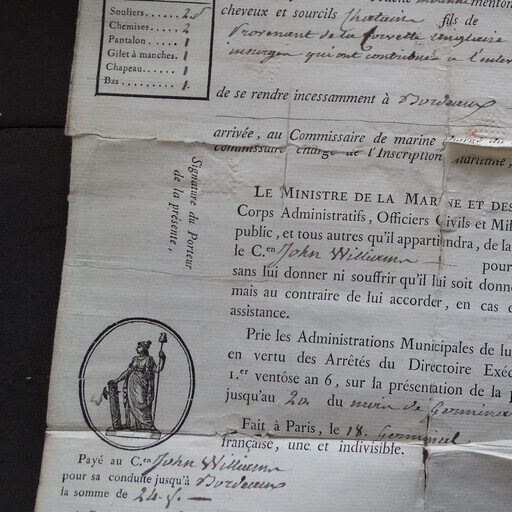 Souliers..... 2
Chemises..... 2
Pantalon..... 1
Gilet à manches. 1
Chapeau..... 1
Bas........ 1.
cheveux et sourcils Chatains fils de
Provenant de la Corvette
insurgés qui ont contribués à l'
de se rendre incessamment à Bordeaux
arrivée, au Commissaire de marine
commissaire chargé de l'Inscription maritime,
Signature du Porteur
de la présente,
LE MINISTRE DE LA MARINE ET DES
Corps Administratifs, Officiers Civils et Mil
public, et tous autres qu'il appartiendra, de la
le C.en John William — pour
sans lui donner ni souffrir qu'il lui soit donn
mais au contraire de lui accorder, en cas d
assistance.
Prie les Administrations Municipales de lu
en vertu des Arrêtés du Directoire Exéc
1.er ventôse an 6, sur la présentation de la
jusqu'au 20. du mois de Germinal
Fait à Paris, le 18. Germinal.
française, une et indivisible.
Payé au C.en John William
pour sa conduite jusqu'à Bordeaux
la somme de 24